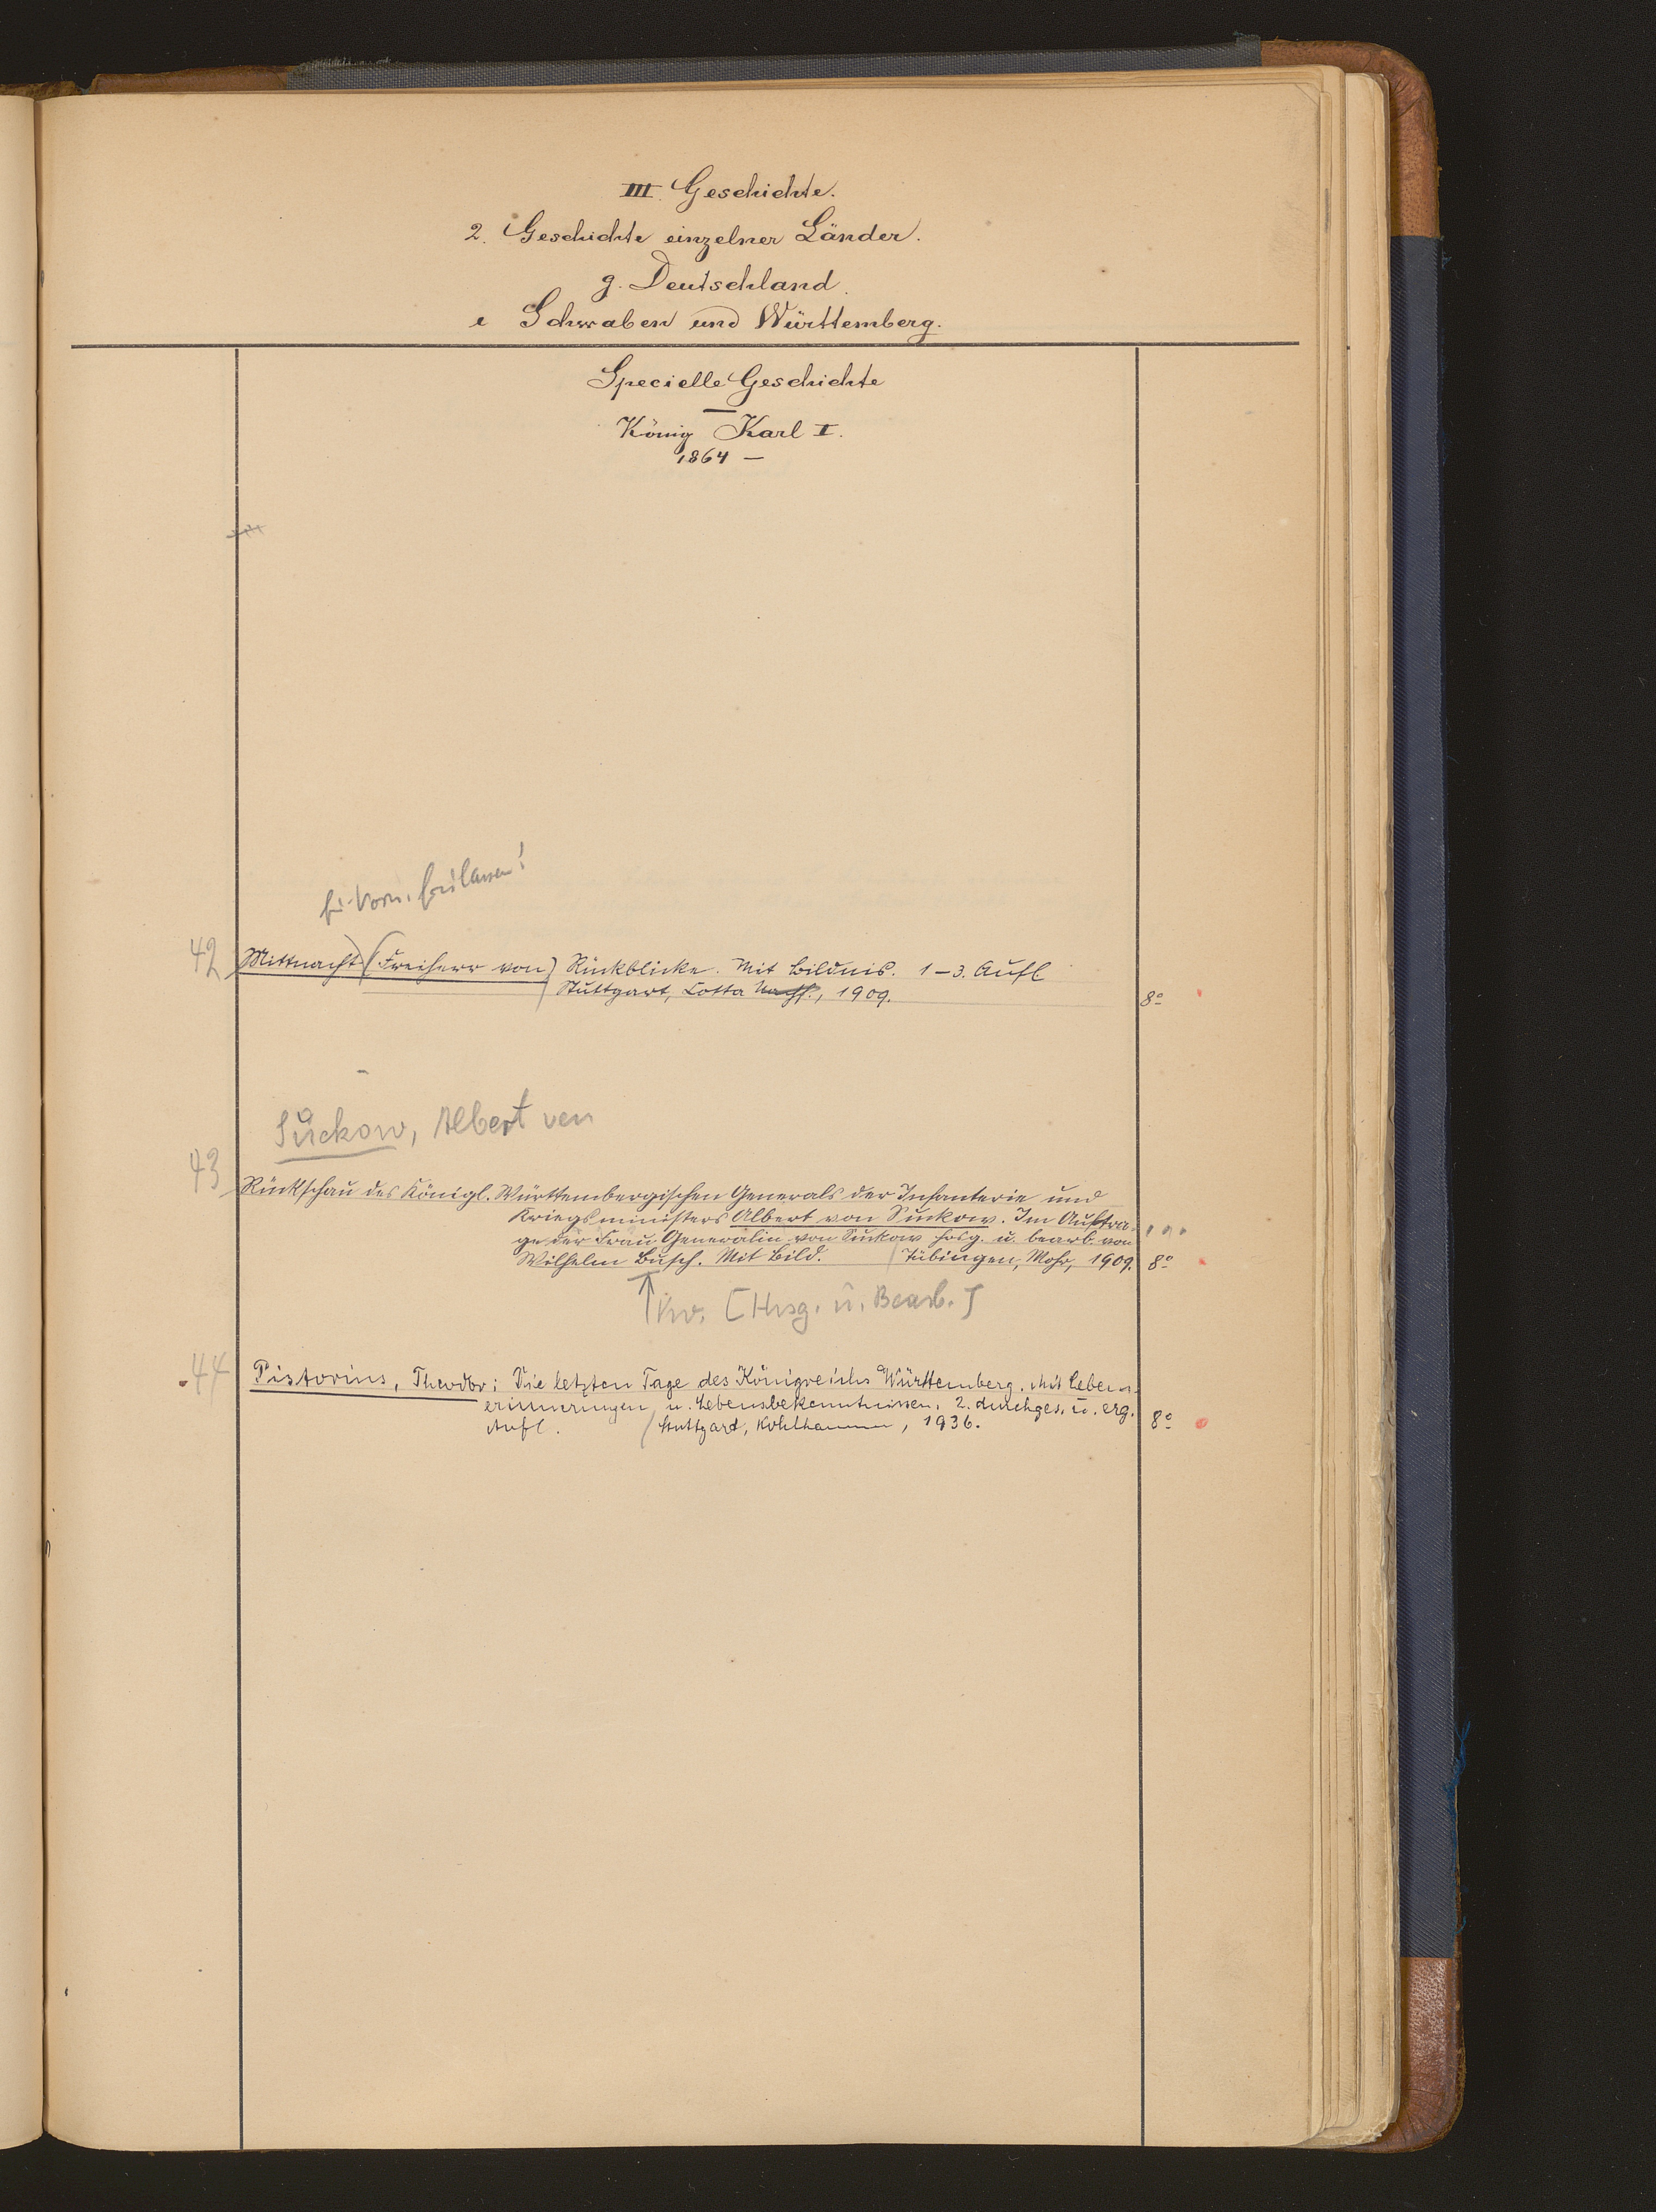 III. Geschichte.
2. Geschichte einzelner Länder.
g. Deutschland.
e Schwaben und Württemberg.
Specielle Geschichte
König Karl I.
1864 —
für Vorn. freilassen!
42 Mittnacht (Freiherr von) Rückblicke. Mit Bildnis. 1–3. Aufl
Stuttgart, Cotta Nachf., 1909. 8°
Suckow, Albert von
43 Rückschau des Königl. Württembergischen Generals der Infanterie und
Kriegsministers Albert von Suckow. Im Auftra-
ge der Frau Generalin von Suckow hrsg. u. bearb. von
Wilhelm Busch. Mit Bild. / Tübingen, Mohr, 1909. 8°
[Hrsg. u. Bearb.]
44 Pistorius, Theodor: Die letzten Tage des Königreichs Württemberg. Mit Lebens-
erinnerungen u. Lebensbekenntnissen. 2. durchges. u. erg.
Aufl. / Stuttgart, Kohlhammer, 1936. 8°